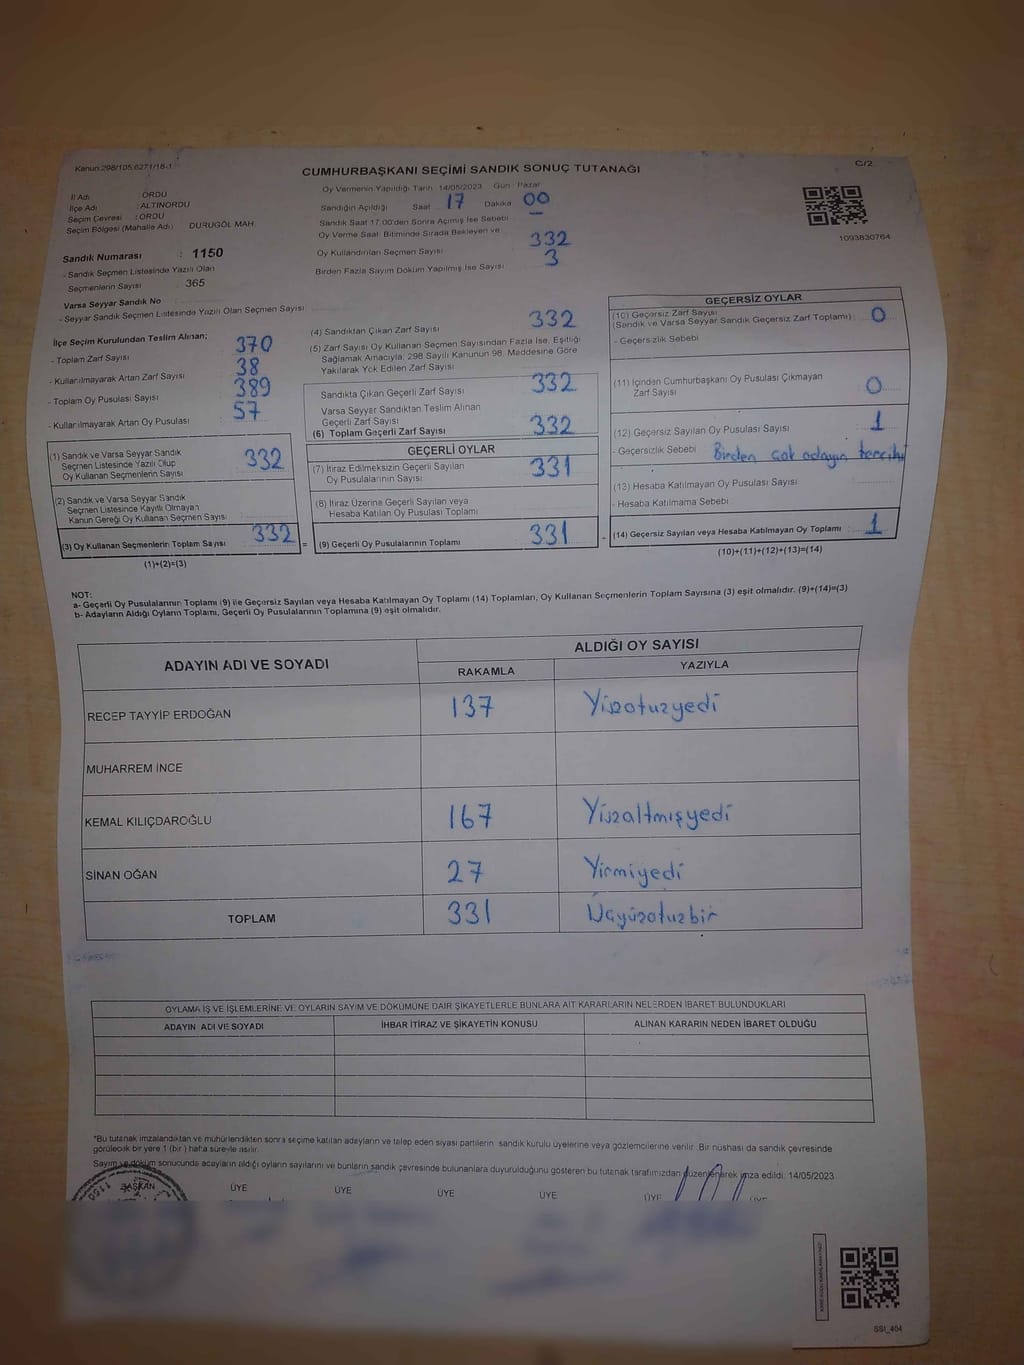 Kanun:298/105,6271/18-1
C/2
CUMHURBAŞKANI SEÇİMİ SANDIK SONUÇ TUTANAĞI
İl Adı : ORDU
İlçe Adı : ALTINORDU
Seçim Çevresi : ORDU
Seçim Bölgesi (Mahalle Adı) DURUGÖL MAH.
Sandık Numarası : 1150
- Sandık Seçmen Listesinde Yazılı Olan
Seçmenlerin Sayısı 365
Varsa Seyyar Sandık No
- Seyyar Sandık Seçmen Listesinde Yazılı Olan Seçmen Sayısı
Oy Vermenin Yapıldığı Tarih 14/05/2023 Gün : Pazar
Sandığın Açıldığı Saat 17 Dakika 00
Sandık Saat 17.00'den Sonra Açmış İse Sebebi
Oy Verme Saati Bitiminde Sırada Bekleyen ve
Oy Kullandırılan Seçmen Sayısı 332
Birden Fazla Sayım Döküm Yapılmış İse Sayısı 3
1093830764
İlçe Seçim Kurulundan Teslim Alınan;
- Toplam Zarf Sayısı 370
- Kullanılmayarak Artan Zarf Sayısı 38
- Toplam Oy Pusulası Sayısı 389
- Kullanılmayarak Artan Oy Pusulası 57
(1) Sandık ve Varsa Seyyar Sandık
Seçmen Listesinde Yazılı Olup
Oy Kullanan Seçmenlerin Sayısı 332
(2) Sandık ve Varsa Seyyar Sandık
Seçmen Listesinde Kayıtlı Olmayan
Kanun Gereği Oy Kullanan Seçmen Sayısı
(3) Oy Kullanan Seçmenlerin Toplam Sayısı 332 =
(1)+(2)=(3)
(4) Sandıktan Çıkan Zarf Sayısı 332
(5) Zarf Sayısı Oy Kullanan Seçmen Sayısından Fazla İse, Eşitliği
Sağlamak Amacıyla; 298 Sayılı Kanunun 98. Maddesine Göre
Yakılarak Yok Edilen Zarf Sayısı
Sandıkta Çıkan Geçerli Zarf Sayısı 332
Varsa Seyyar Sandıktan Teslim Alınan
Geçerli Zarf Sayısı
(6) Toplam Geçerli Zarf Sayısı 332
GEÇERLİ OYLAR
(7) İtiraz Edilmeksizin Geçerli Sayılan
Oy Pusulalarının Sayısı 331
(8) İtiraz Üzerine Geçerli Sayılan veya
Hesaba Katılan Oy Pusulası Toplamı
(9) Geçerli Oy Pusulalarının Toplamı 331
GEÇERSİZ OYLAR
(10) Geçersiz Zarf Sayısı
(Sandık ve Varsa Seyyar Sandık Geçersiz Zarf Toplamı) 0
- Geçersizlik Sebebi
(11) İçinden Cumhurbaşkanı Oy Pusulası Çıkmayan
Zarf Sayısı 0
(12) Geçersiz Sayılan Oy Pusulası Sayısı 1
- Geçersizlik Sebebi Birden çok adayın tercihi
(13) Hesaba Katılmayan Oy Pusulası Sayısı
- Hesaba Katılmama Sebebi
(14) Geçersiz Sayılan veya Hesaba Katılmayan Oy Toplamı 1
(10)+(11)+(12)+(13)=(14)
NOT:
a- Geçerli Oy Pusulalarının Toplamı (9) ile Geçersiz Sayılan veya Hesaba Katılmayan Oy Toplamı (14) Toplamları, Oy Kullanan Seçmenlerin Toplam Sayısına (3) eşit olmalıdır. (9)+(14)=(3)
b- Adayların Aldığı Oyların Toplamı, Geçerli Oy Pusulalarının Toplamına (9) eşit olmalıdır.
ADAYIN ADI VE SOYADI
ALDIĞI OY SAYISI
RAKAMLA YAZIYLA
RECEP TAYYİP ERDOĞAN 137 Yüzotuzyedi
MUHARREM İNCE
KEMAL KILIÇDAROĞLU 167 Yüzaltmışyedi
SİNAN OĞAN 27 Yirmiyedi
TOPLAM 331 Üçyüzotuzbir
OYLAMA İŞ VE İŞLEMLERİNE VE OYLARIN SAYIM VE DÖKÜMÜNE DAİR ŞİKAYETLERLE BUNLARA AİT KARARLARIN NELERDEN İBARET BULUNDUKLARI
ADAYIN ADI VE SOYADI İHBAR İTİRAZ VE ŞİKAYETİN KONUSU ALINAN KARARIN NEDEN İBARET OLDUĞU
*Bu tutanak imzalandıktan ve mühürlendikten sonra seçime katılan adayların ve talep eden siyasi partilerin sandık kurulu üyelerine veya gözlemcilerine verilir. Bir nüshası da sandık çevresinde
görülecek bir yere 1 (bir) hafta süreyle asılır.
Sayım ve döküm sonucunda adayların aldığı oyların sayılarını ve bunların sandık çevresinde bulunanlara duyurulduğunu gösteren bu tutanak tarafımızdan düzenlenerek imza edildi. 14/05/2023
BAŞKAN ÜYE ÜYE ÜYE ÜYE ÜYE ÜYE
1150
SSI_404